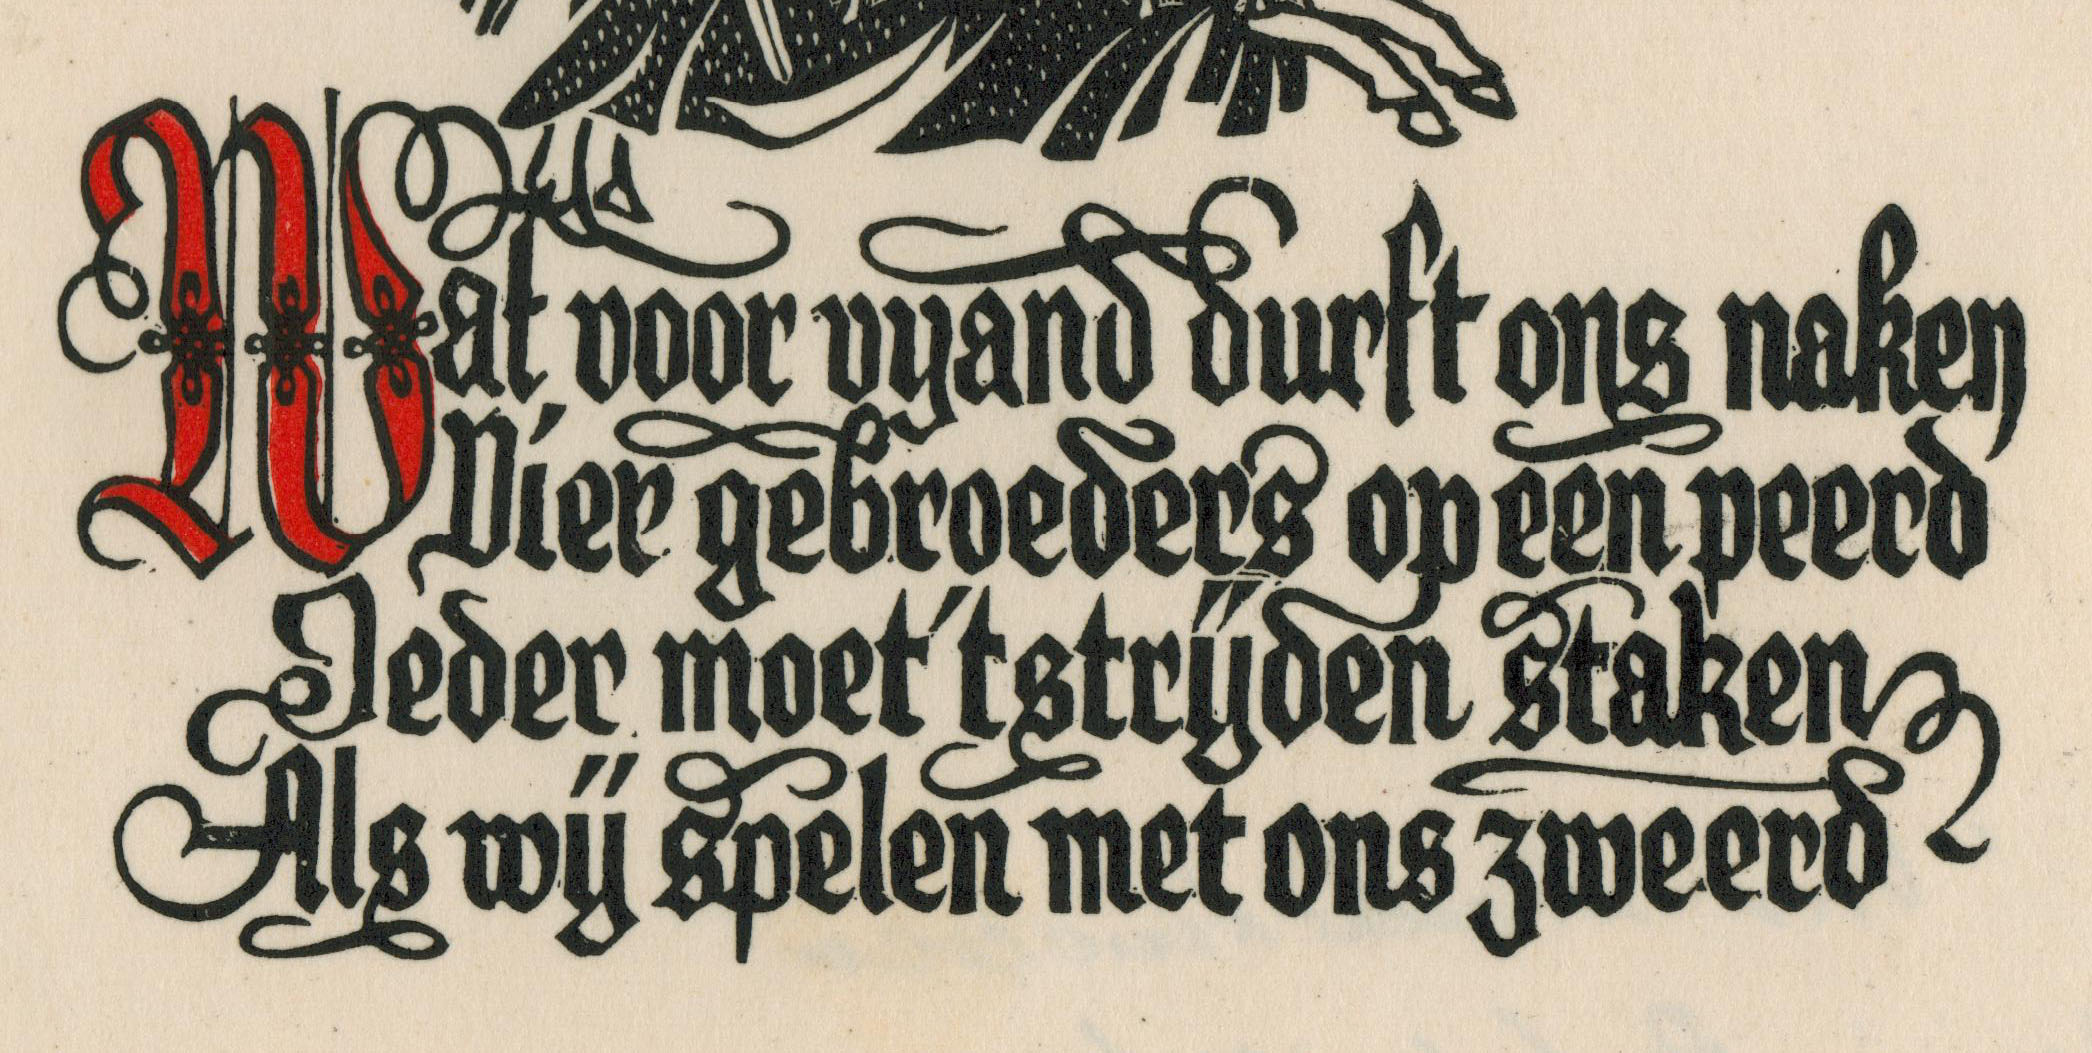 Wat voor vyand durft ons naken
Vier gebroeders op een peerd
Ieder moet 't strijden staken
Als wij spelen met ons zweerd